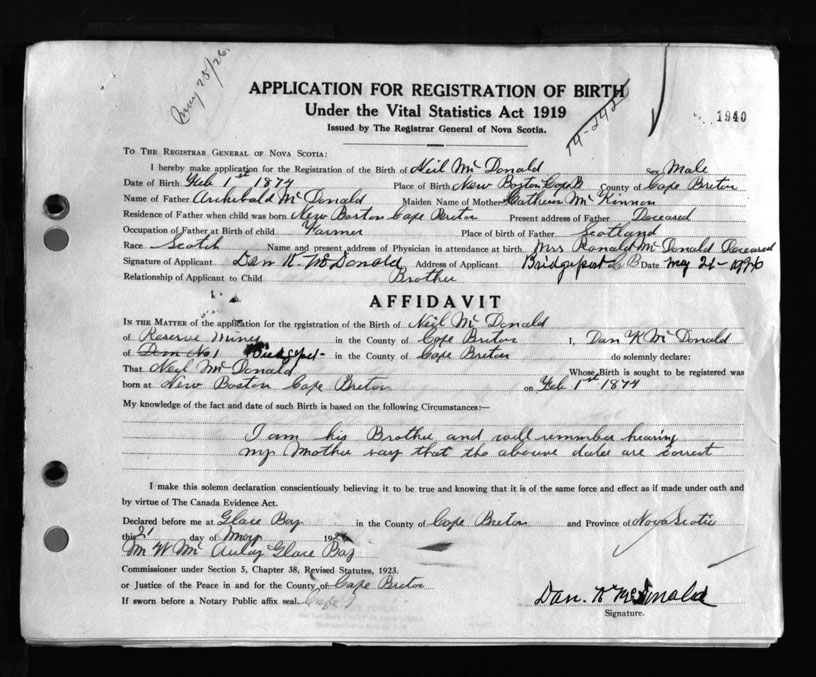 May 28/26.
APPLICATION FOR REGISTRATION OF BIRTH
Under the Vital Statistics Act 1919
Issued by The Registrar General of Nova Scotia.
1940
TO THE REGISTRAR GENERAL OF NOVA SCOTIA:
I hereby make application for the Registration of the Birth of Neil McDonald sex Male
Date of Birth Feb 1st 1874 Place of Birth New Boston Cape B County of Cape Breton
Name of Father Archibald McDonald Maiden Name of Mother Catherin McKinnon
Residence of Father when child was born New Boston Cape Breton Present address of Father Deceased
Occupation of Father at Birth of child Farmer Place of birth of Father Scotland
Race Scotch Name and present address of Physician in attendance at birth Mrs Ronald McDonald Deceased
Signature of Applicant Dan K. McDonald Address of Applicant Bridgeport C B Date May 21-1926
Relationship of Applicant to Child Brother
AFFIDAVIT
IN THE MATTER of the application for the registration of the Birth of Neil McDonald
of Reserve Mines in the County of Cape Breton I, Dan K McDonald
of Dom No 1 Bridgeport in the County of Cape Breton do solemnly declare:
That Neil McDonald Whose Birth is sought to be registered was
born at New Boston Cape Breton on Feb 1st 1874
My knowledge of the fact and date of such Birth is based on the following Circumstances:—
I am his Brother and will remmber hearing
my Mother say that the abouve dates are correct
I make this solemn declaration conscientiously believing it to be true and knowing that it is of the same force and effect as if made under oath and
by virtue of The Canada Evidence Act.
Declared before me at Glace Bay in the County of Cape Breton and Province of Nova Scotia
this 21 day of May 1926
M W McAulay Glace Bay
Commissioner under Section 5, Chapter 38, Revised Statutes, 1923.
or Justice of the Peace in and for the County of Cape Breton
If sworn before a Notary Public affix seal.
Dan. K McDonald
Signature.